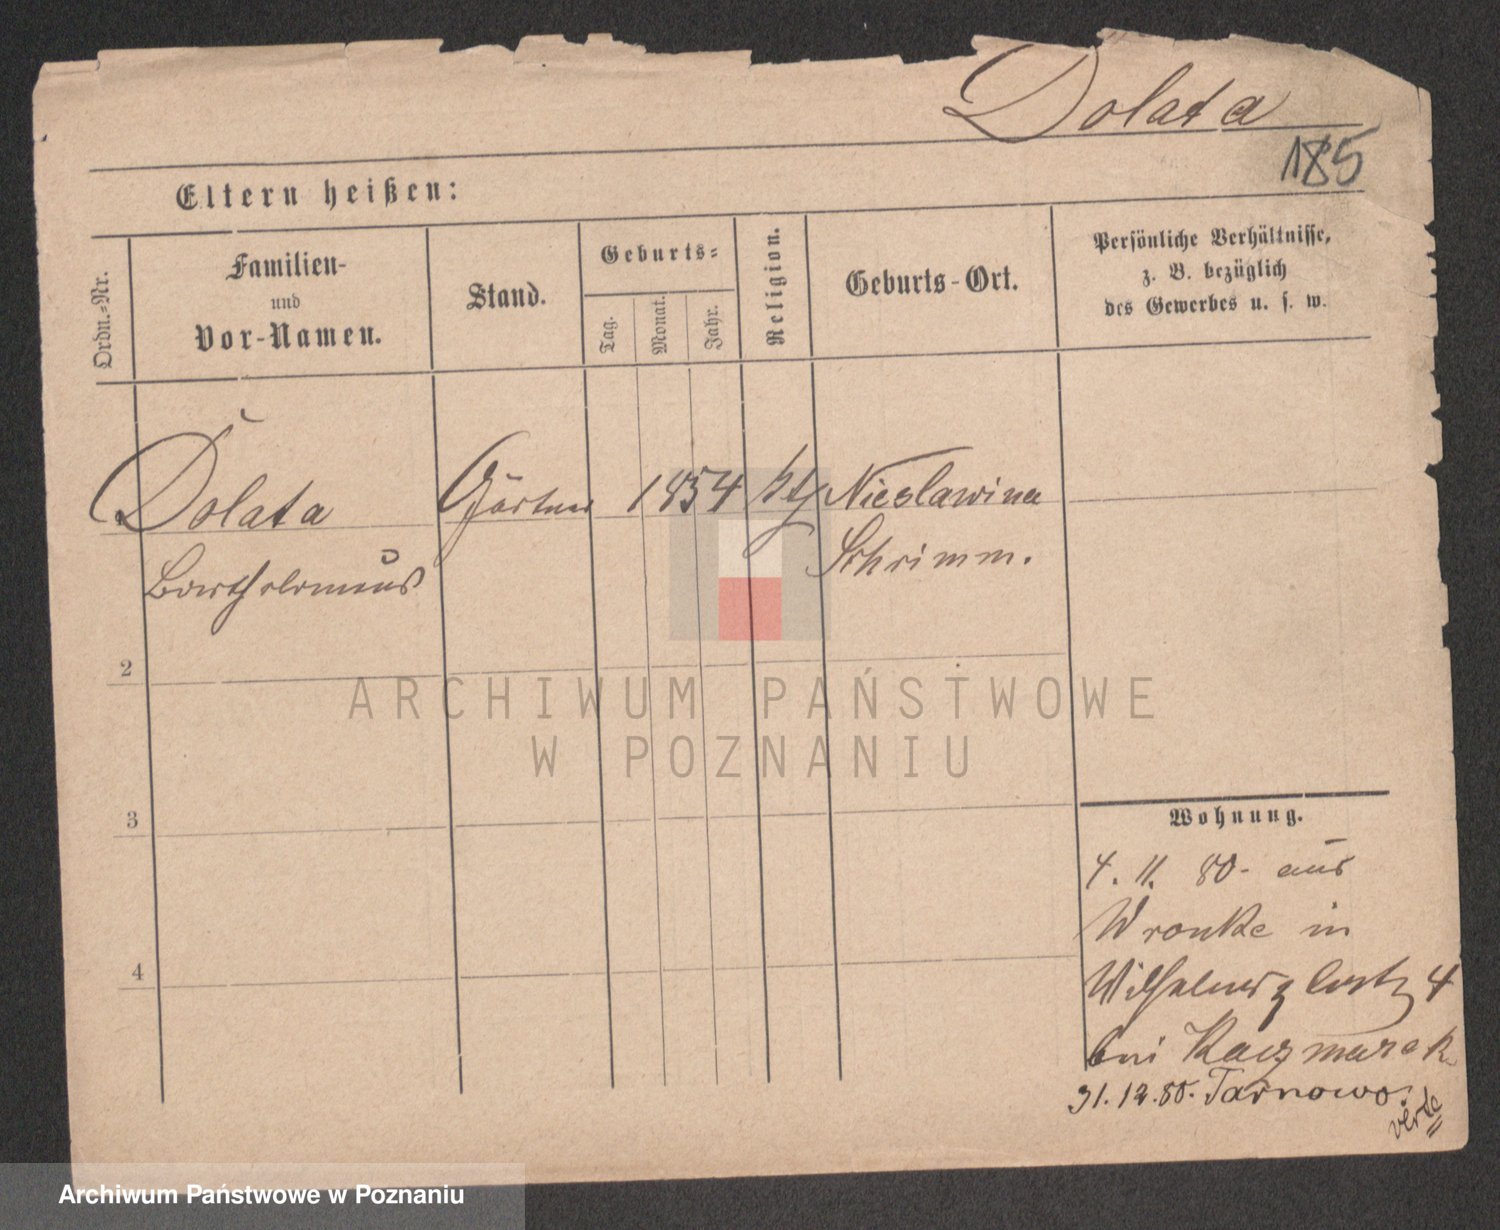 Dolata
185
Eltern heißen:
Ordn.-Nr.
Familien-
und
Vor-Namen.
Stand.
Geburts-
Tag.
Monat.
Jahr.
Religion.
Geburts-Ort.
Persönliche Verhältnisse,
z. B. bezüglich
des Gewerbes u. s. w.
Dolata Gärtner 1854 kth Nieslawin
Bartholomäus Schrimm.
2
3
4
Wohnung.
4. 11. 80. aus
Wronke in
Wilhelmsplatz 4
bei Kaczmarek
31.12.80. Tarnowo.
verte
ARCHIWUM PAŃSTWOWE
W POZNANIU
Archiwum Państwowe w Poznaniu